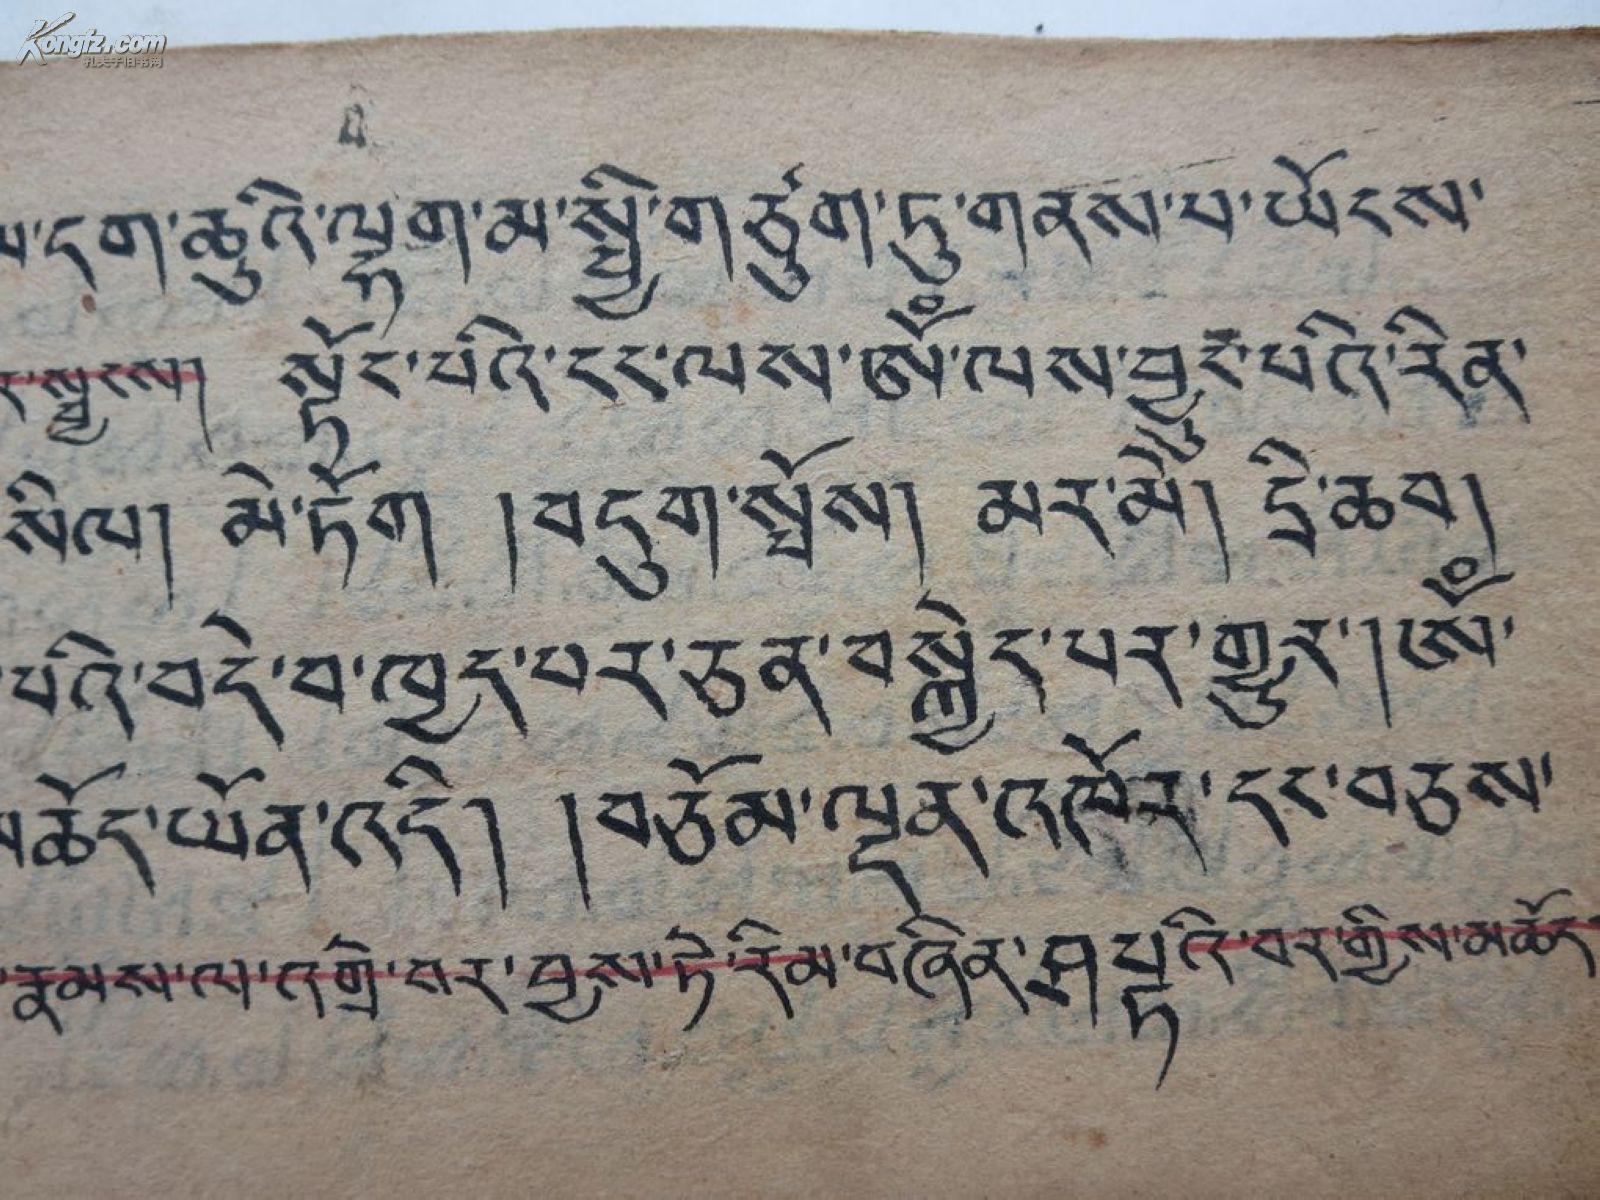 Kongfz.com
孔夫子旧书网
དག་ཆུའི་ལྷག་མ་སྤྱི་གཙུག་ཏུ་གནས་པ་ཡོངས་
སྦྱངས། སྟོང་པའི་ངང་ལས་ཨོཾ་ལས་བྱུང་པའི་རིན་
སིལ། མེ་ཏོག །བདུག་སྤོས། མར་མེ། དྲི་ཆབ།
པའི་བདེ་བ་ཁྱད་པར་ཅན་བསྐྱེད་པར་གྱུར། ཨོཾ་
མཆོད་ཡོན་འདི། །བཅོམ་ལྡན་འཁོར་དང་བཅས་
རྣམས་ལ་འགྲེ་བར་བྱས་ཏེ་རིམ་བཞིན་ཤཔྟའི་བར་གྱིས་མཆོད